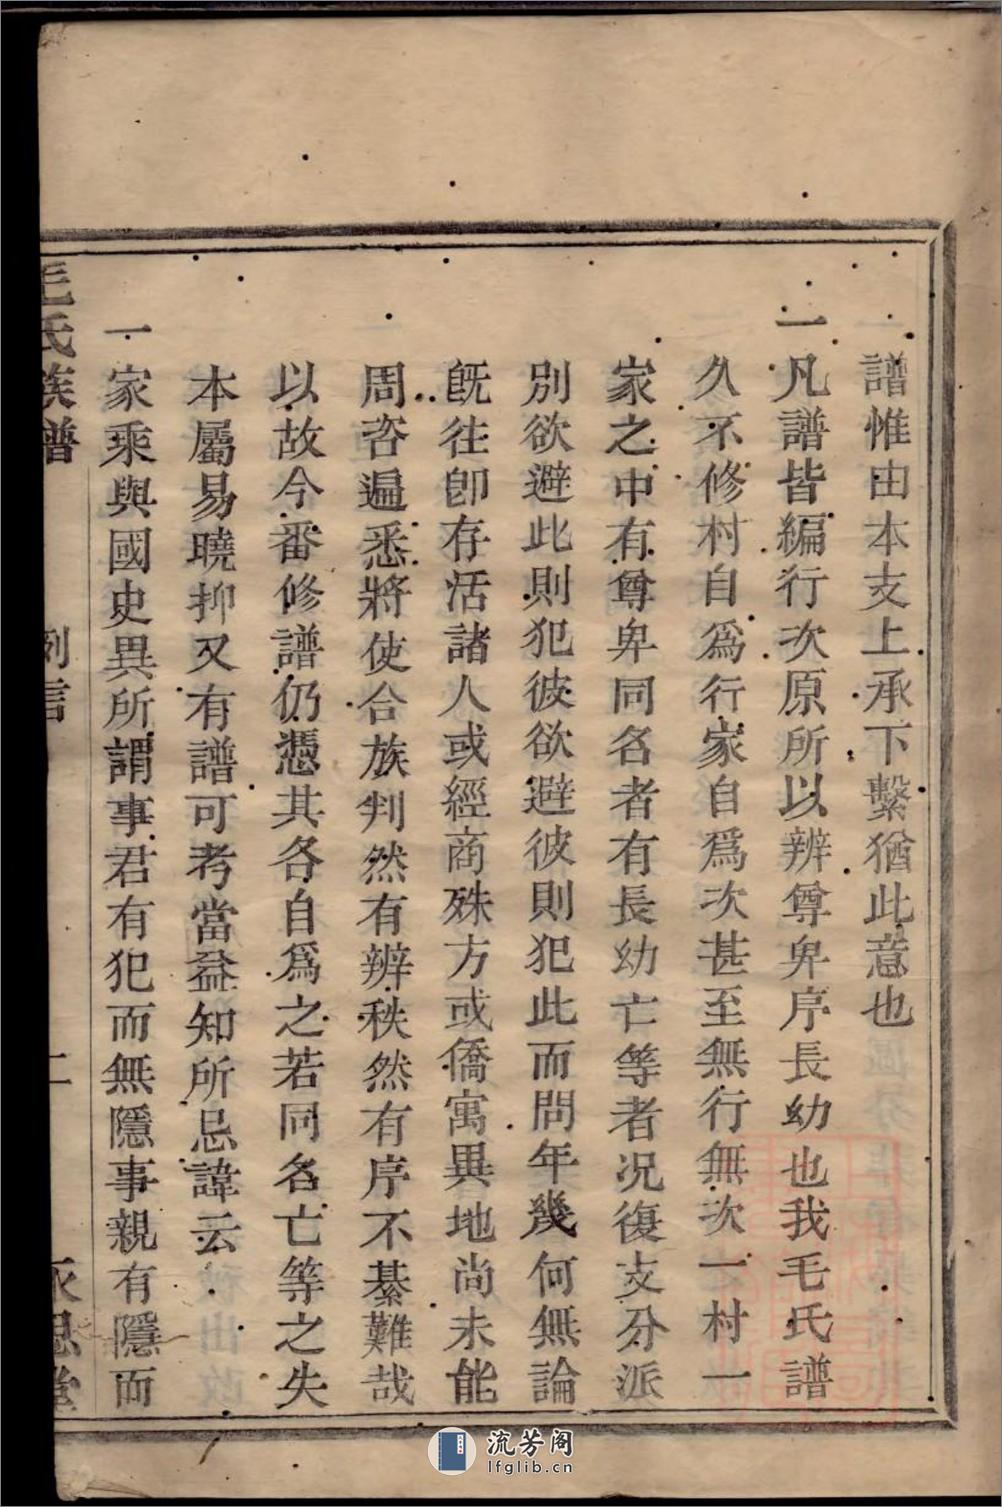 譜惟由本支上承下繫猶此意也
一凡譜皆編行次原所以辨尊卑序長幼也我毛氏譜
久不修村自爲行家自爲次甚至無行無次一村一
家之中有尊卑同名者有長幼亡等者況復支分派
別欲避此則犯彼欲避彼則犯此而問年幾何無論
旣往卽存活諸人或經商殊方或僑寓異地尚未能
周咨遍悉將使合族判然有辨秩然有序不綦難哉
以故今番修譜仍憑其各自爲之若同名亡等之失
本屬易曉抑又有譜可考當益知所忌諱云
一家乘與國史異所謂事君有犯而無隱事親有隱而
毛氏族譜
例言
二
永思堂
流芳阁
lfglib.cn